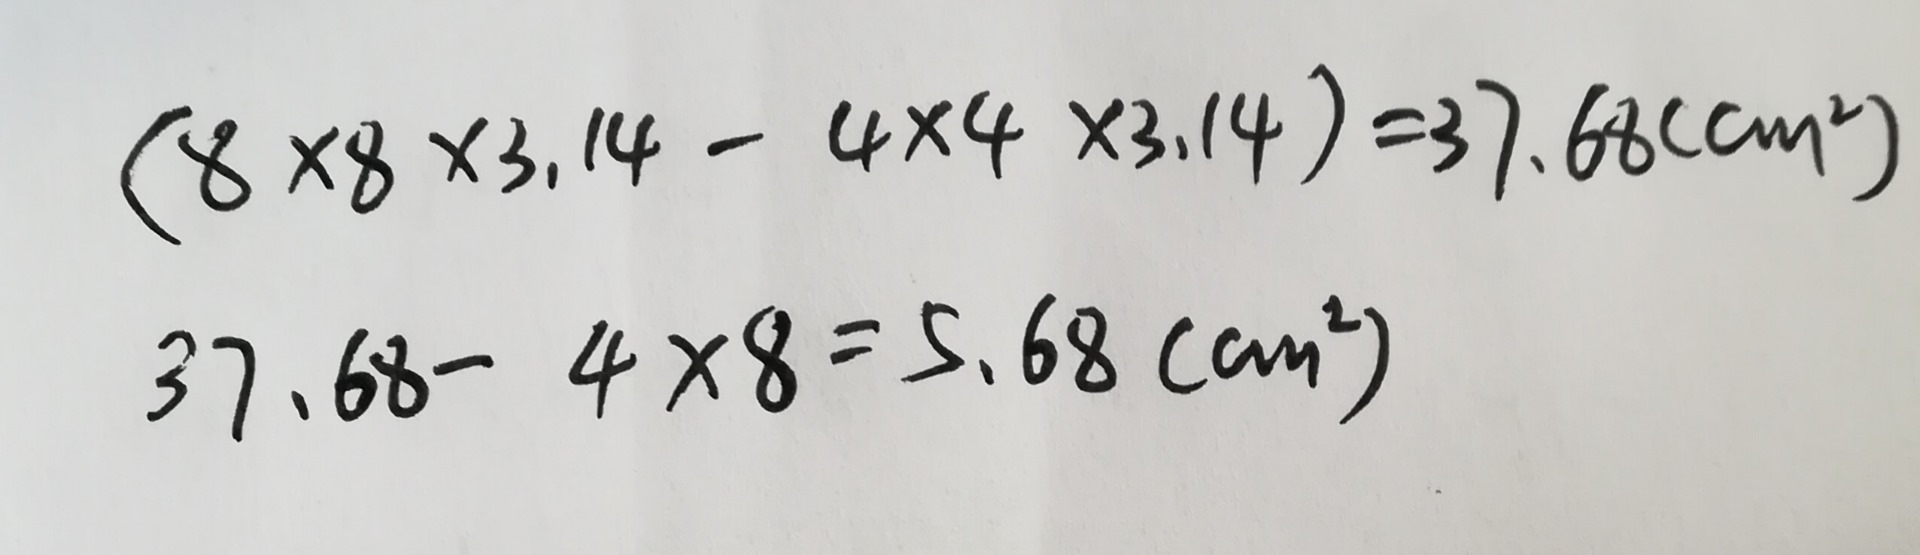 (8×8×3.14-4×4×3.14)=37.68(cm²)
37.68-4×8=5.68(cm²)